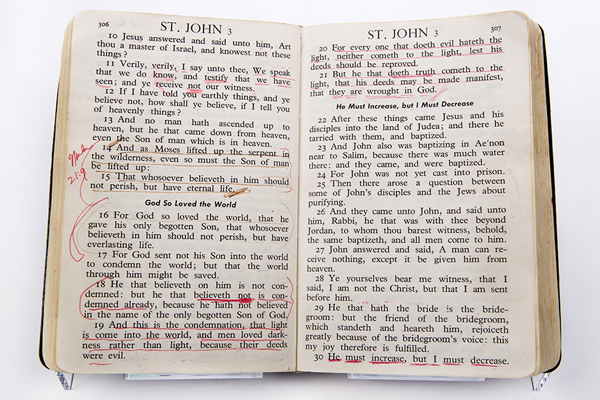 306
ST. JOHN 3
10 Jesus answered and said unto him, Art
thou a master of Israel, and knowest not these
things?
11 Verily, verily, I say unto thee, We speak
that we do know, and testify that we have
seen; and ye receive not our witness.
12 If I have told you earthly things, and ye
believe not, how shall ye believe, if I tell you
of heavenly things?
13 And no man hath ascended up to
heaven, but he that came down from heaven,
even the Son of man which is in heaven.
14 And as Moses lifted up the serpent in
the wilderness, even so must the Son of man
be lifted up:
15 That whosoever believeth in him should
not perish, but have eternal life.
21:9
God So Loved the World
16 For God so loved the world, that he
gave his only begotten Son, that whosoever
believeth in him should not perish, but have
everlasting life.
17 For God sent not his Son into the world
to condemn the world; but that the world
through him might be saved.
18 He that believeth on him is not con-
demned: but he that believeth not is con-
demned already, because he hath not believed
in the name of the only begotten Son of God.
19 And this is the condemnation, that light
is come into the world, and men loved dark-
ness rather than light, because their deeds
were evil.
ST. JOHN 3
307
20 For every one that doeth evil hateth the
light, neither cometh to the light, lest his
deeds should be reproved.
21 But he that doeth truth cometh to the
light, that his deeds may be made manifest,
that they are wrought in God.
He Must Increase, but I Must Decrease
22 After these things came Jesus and his
disciples into the land of Judea; and there he
tarried with them, and baptized.
23 And John also was baptizing in Ae'non
near to Salim, because there was much water
there: and they came, and were baptized.
24 For John was not yet cast into prison.
25 Then there arose a question between
some of John's disciples and the Jews about
purifying.
26 And they came unto John, and said unto
him, Rabbi, he that was with thee beyond
Jordan, to whom thou barest witness, behold,
the same baptizeth, and all men come to him.
27 John answered and said, A man can re-
ceive nothing, except it be given him from
heaven.
28 Ye yourselves bear me witness, that I
said, I am not the Christ, but that I am sent
before him.
29 He that hath the bride is the bride-
groom: but the friend of the bridegroom,
which standeth and heareth him, rejoiceth
greatly because of the bridegroom's voice: this
my joy therefore is fulfilled.
30 He must increase, but I must decrease.